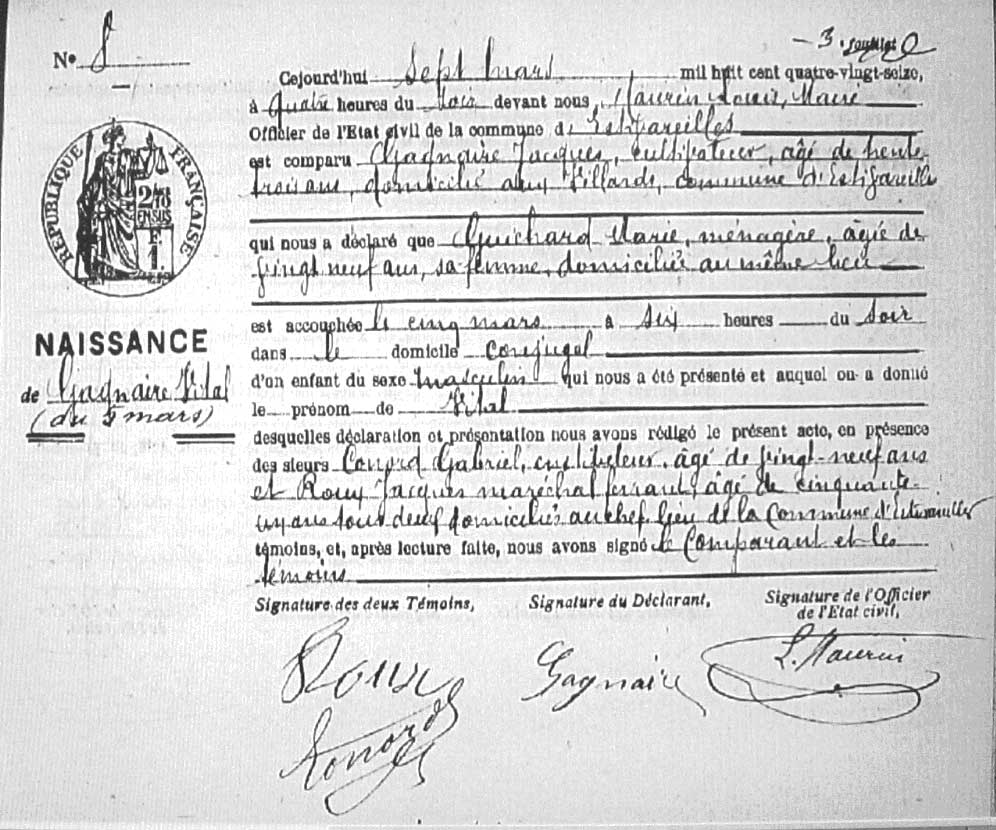 N° 8
- 3
Cejourd'hui sept mars mil huit cent quatre-vingt-seize,
à quatre heures du soir devant nous, Maurin Louis, Maire
Officier de l'Etat civil de la commune d' Estivareilles
est comparu Gagnaire Jacques, cultivateur, âgé de trente
trois ans, domicilié aux Villards, commune d'Estivareilles
qui nous a déclaré que Guichard Marie, ménagère, âgée de
vingt neuf ans, sa femme, domiciliée au même lieu
est accouchée le cinq mars à six heures du soir
dans le domicile conjugal
d'un enfant du sexe masculin qui nous a été présenté et auquel on a donné
le prénom de Vital
desquelles déclaration et présentation nous avons rédigé le présent acte, en présence
des sieurs Gabriel, cultivateur, âgé de vingt-neuf ans
et Roux Jacques maréchal ferrant, âgé de cinquante-
un ans tous deux domiciliés au chef lieu de la Commune d'Estivareilles
témoins, et, après lecture faite, nous avons signé le Comparant et les
témoins
RÉPUBLIQUE FRANÇAISE
2/10
EN SUS
F.
1.
NAISSANCE
de Gagnaire Vital
(du 5 mars)
Signature des deux Témoins,
Signature du Déclarant,
Signature de l'Officier
de l'Etat civil,
Roux
Gagnaire
L. Maurin